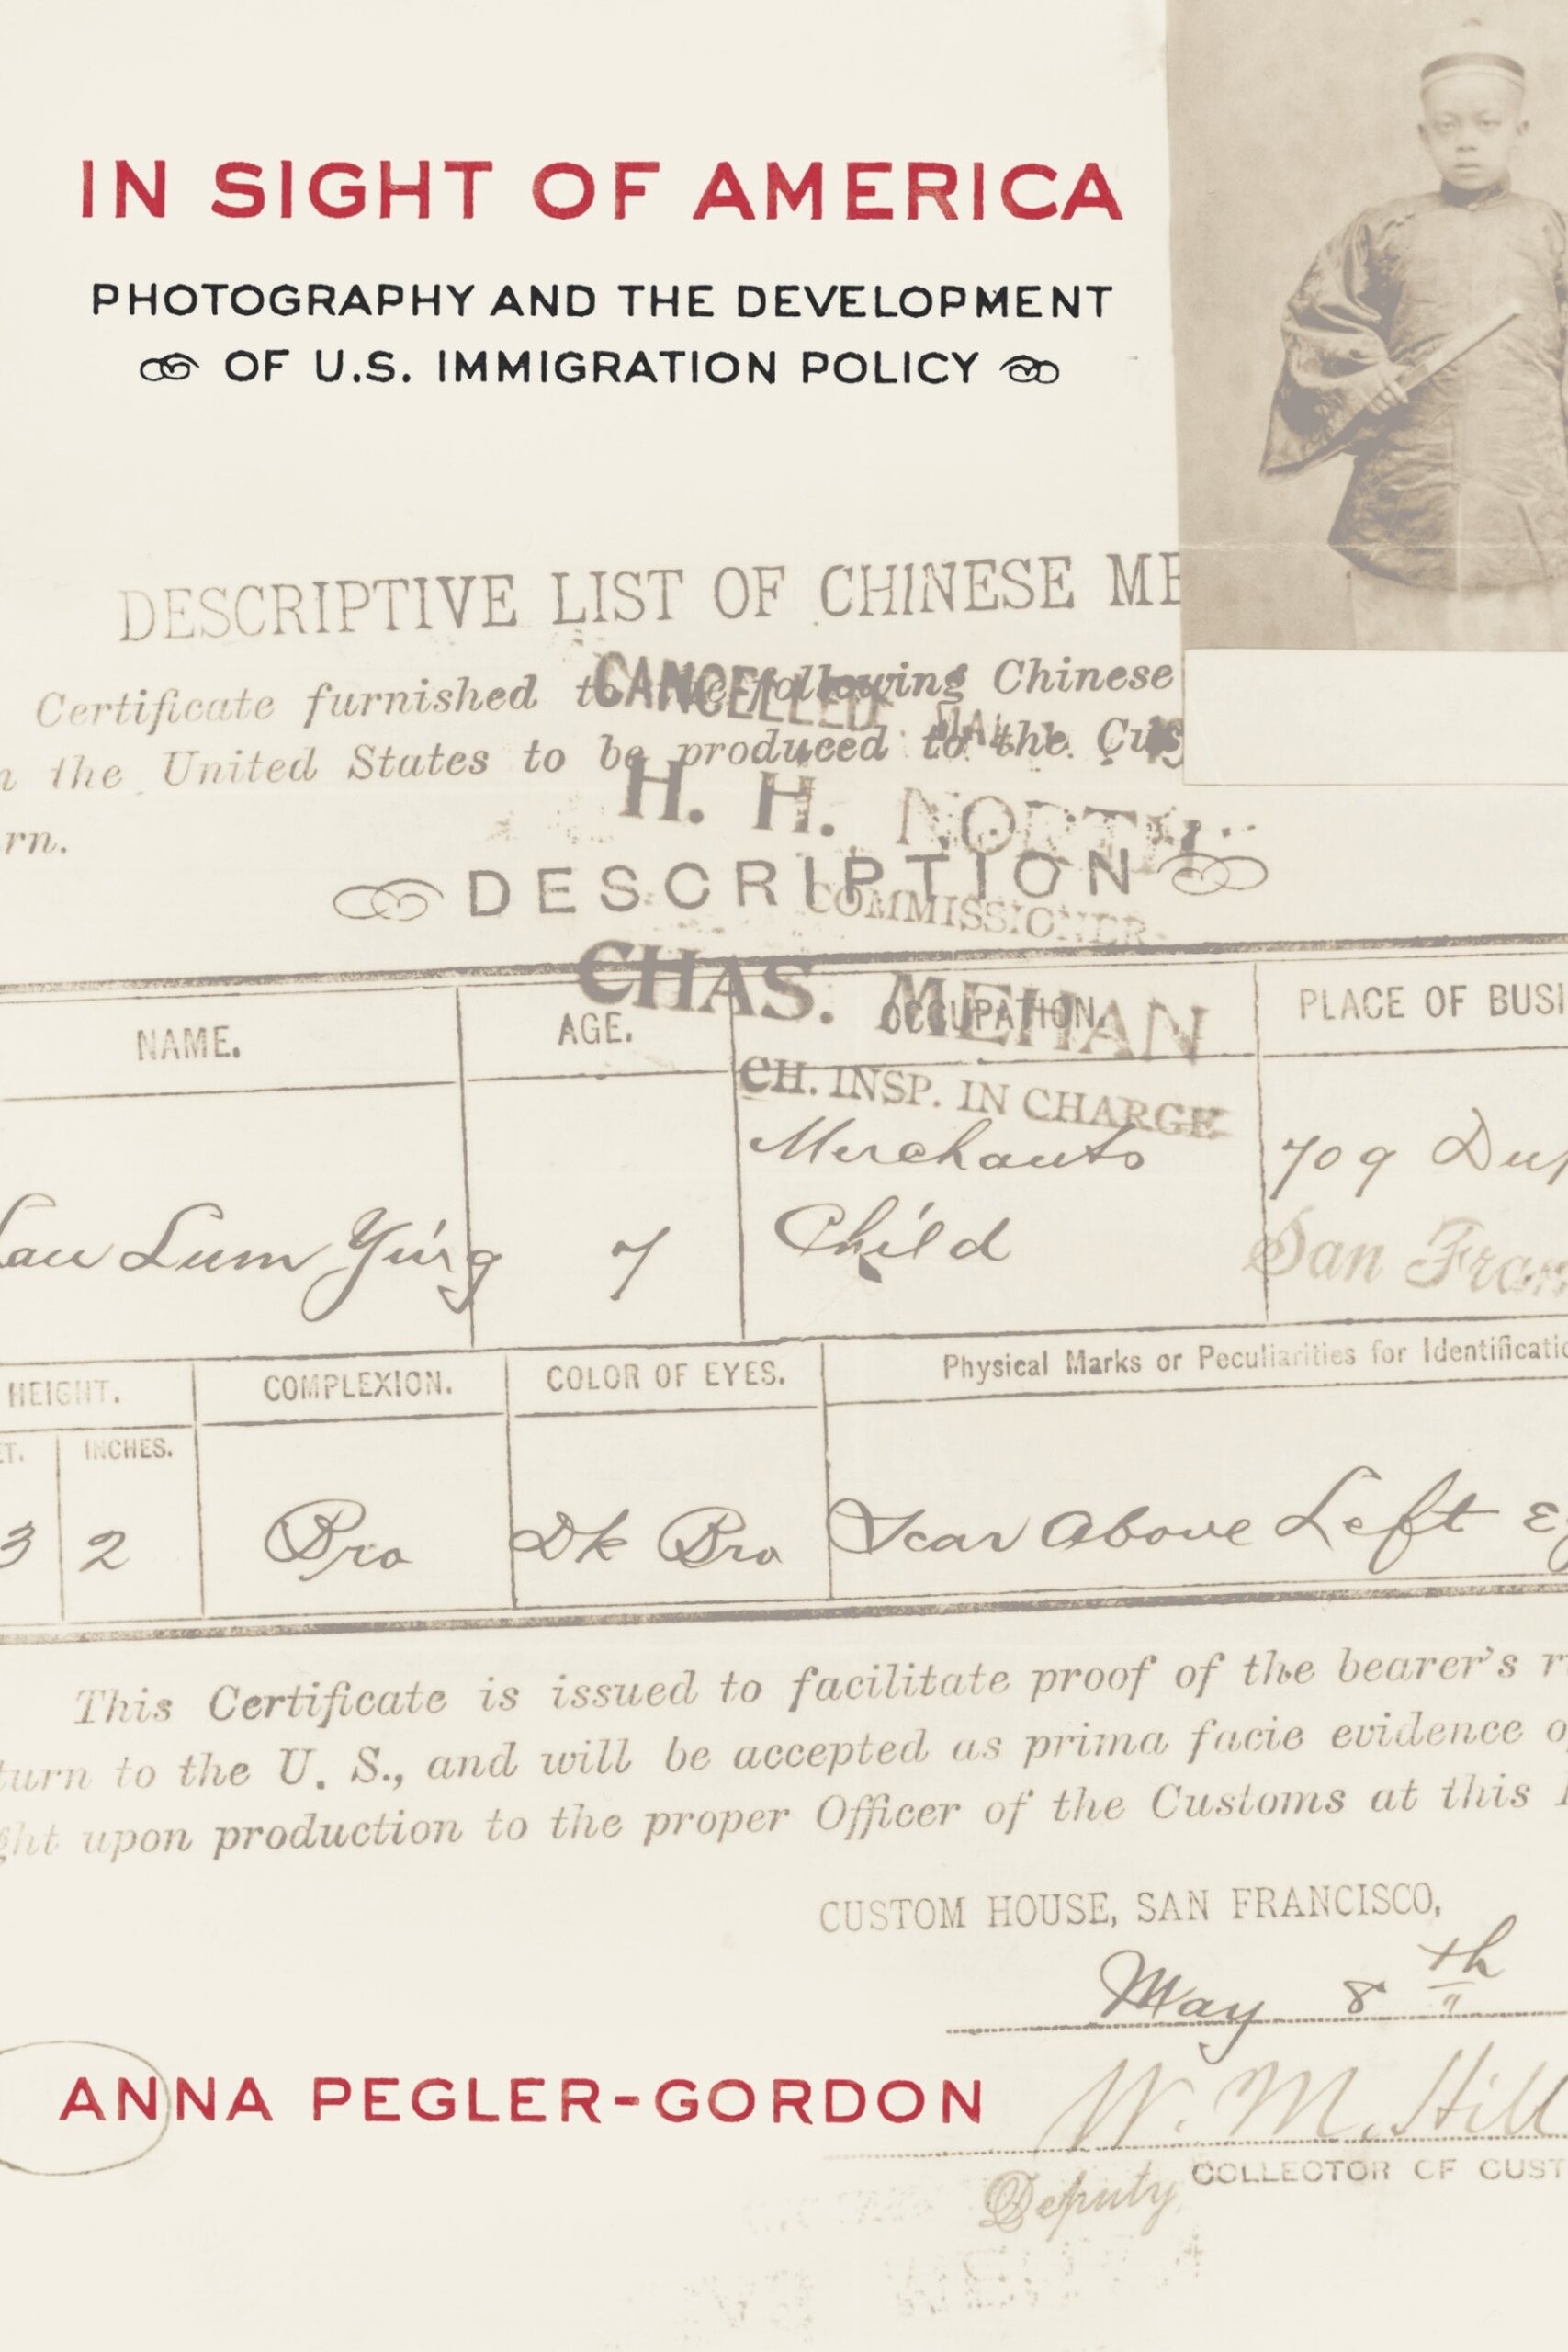 IN SIGHT OF AMERICA
PHOTOGRAPHY AND THE DEVELOPMENT
OF U.S. IMMIGRATION POLICY
DESCRIPTIVE LIST OF CHINESE ME
Certificate furnished to the following Chinese
CANCELLED
n the United States to be produced to the Cus
rn.
H. H. NORTH
DESCRIPTION
COMMISSIONER
CHAS. MEHAN
CH. INSP. IN CHARGE
NAME. AGE. OCCUPATION. PLACE OF BUSI
Merchants 709 Dup
Lau Lum Ying 7 Child San Fran
HEIGHT. COMPLEXION. COLOR OF EYES. Physical Marks or Peculiarities for Identificatio
ET. INCHES.
3 2 Bro Dk Bro Scar Above Left Ey
This Certificate is issued to facilitate proof of the bearer's r
turn to the U. S., and will be accepted as prima facie evidence o
ght upon production to the proper Officer of the Customs at this
CUSTOM HOUSE, SAN FRANCISCO,
May 8th
ANNA PEGLER-GORDON
W. M. Hill
Deputy COLLECTOR OF CUST